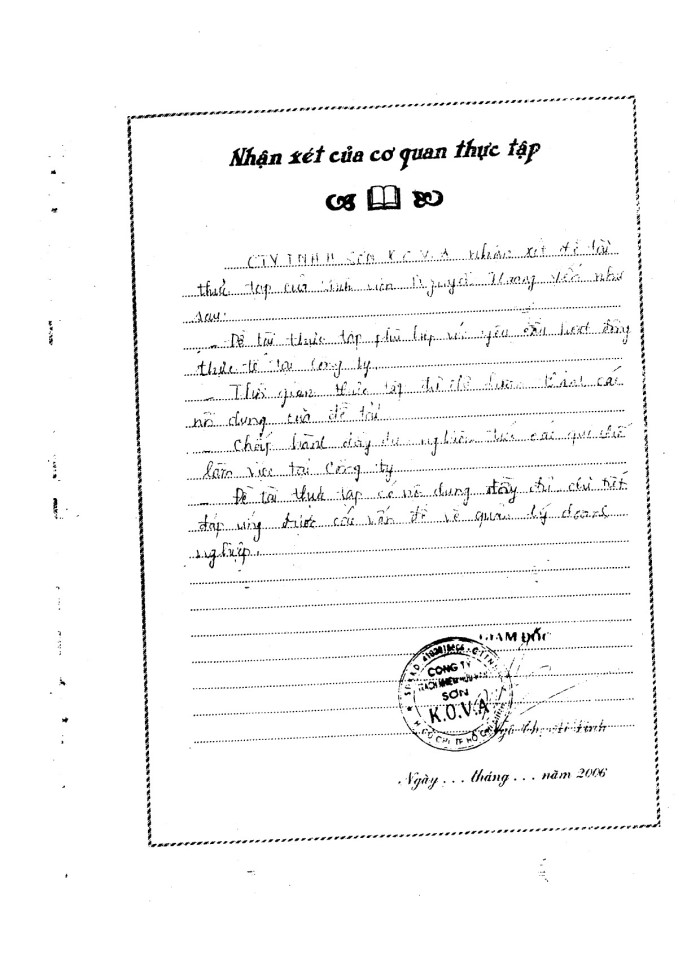 Nhận xét của cơ quan thực tập
CTY TNHH SƠN K.O.V.A nhận xét đề tài
thực tập của sinh viên Nguyễn Hoàng như
sau:
- Đề tài thực tập phù hợp với yêu cầu hoạt động
thực tế tại Công ty
- Thời gian thực tập đủ để các
nội dung của đề tài
- Chấp hành đầy đủ nghiêm túc các qui chế
làm việc tại Công ty
- Đề tài thực tập có nội dung đầy đủ chi tiết
đáp ứng được các vấn đề về quản lý doanh
nghiệp.
GIÁM ĐỐC
CÔNG TY
TRÁCH NHIỆM HỮU HẠN
SƠN
K.O.V.A
H. CỦ CHI TP. HỒ CHÍ MINH
Ngày . . . tháng . . . năm 2006